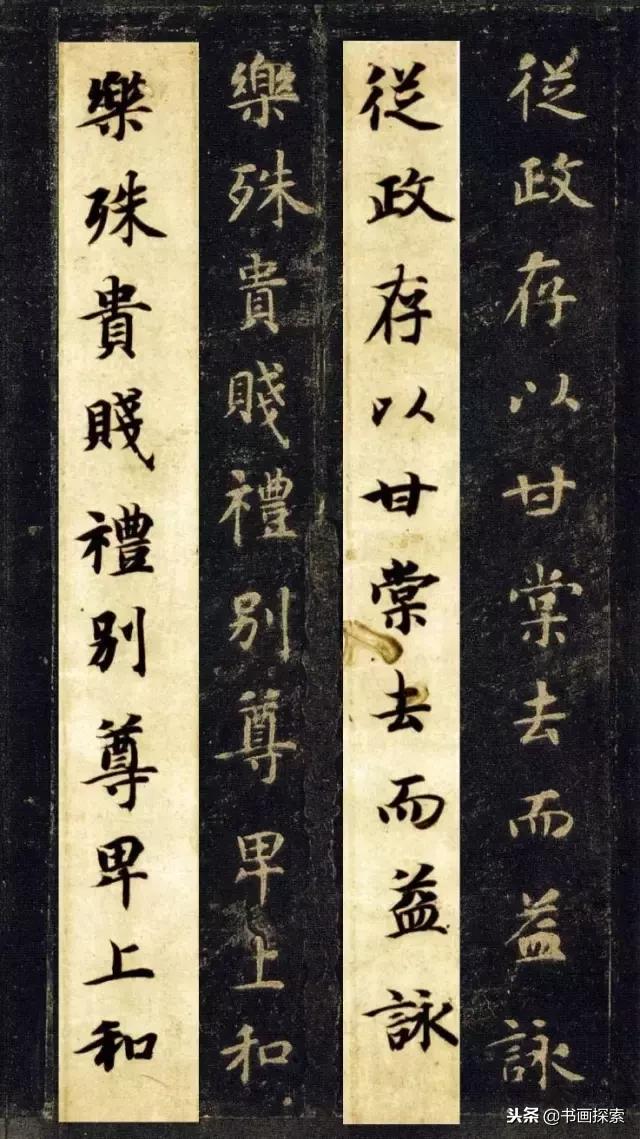 從政存以甘棠去而益詠
從政存以甘棠去而益詠
樂殊貴賤禮別尊卑上和
樂殊貴賤禮別尊卑上和
头条@书画探索